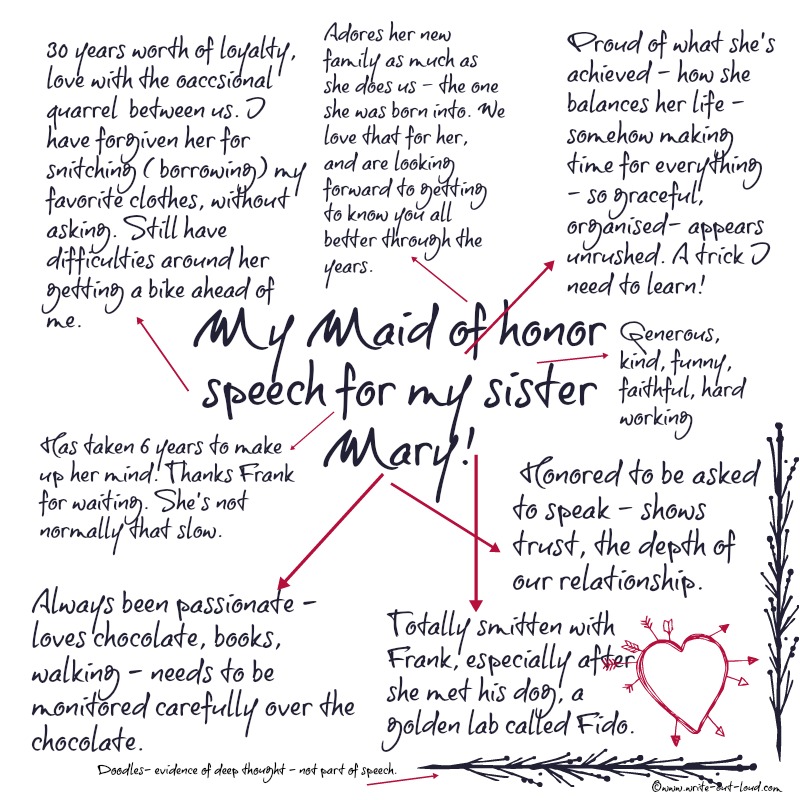 30 years worth of loyalty,
love with the oaccsional
quarrel between us. I
have forgiven her for
snitching (borrowing) my
favorite clothes, without
asking. Still have
difficulties around her
getting a bike ahead of
me.
Adores her new
family as much as
she does us - the one
she was born into. We
love that for her,
and are looking
forward to getting
to know you all
better through the
years.
Proud of what she's
achieved - how she
balances her life -
somehow making
time for everything
- so graceful,
organised- appears
unrushed. A trick I
need to learn!
My Maid of honor
speech for my sister
Mary!
Generous,
kind, funny,
faithful, hard
working
Has taken 6 years to make
up her mind. Thanks Frank
for waiting. She's not
normally that slow.
Honored to be asked
to speak - shows
trust, the depth of
our relationship.
Always been passionate -
loves chocolate, books,
walking - needs to be
monitored carefully over the
chocolate.
Totally smitten with
Frank, especially after
she met his dog, a
golden lab called Fido.
Doodles- evidence of deep thought - not part of speech.
©www.write-out-loud.com